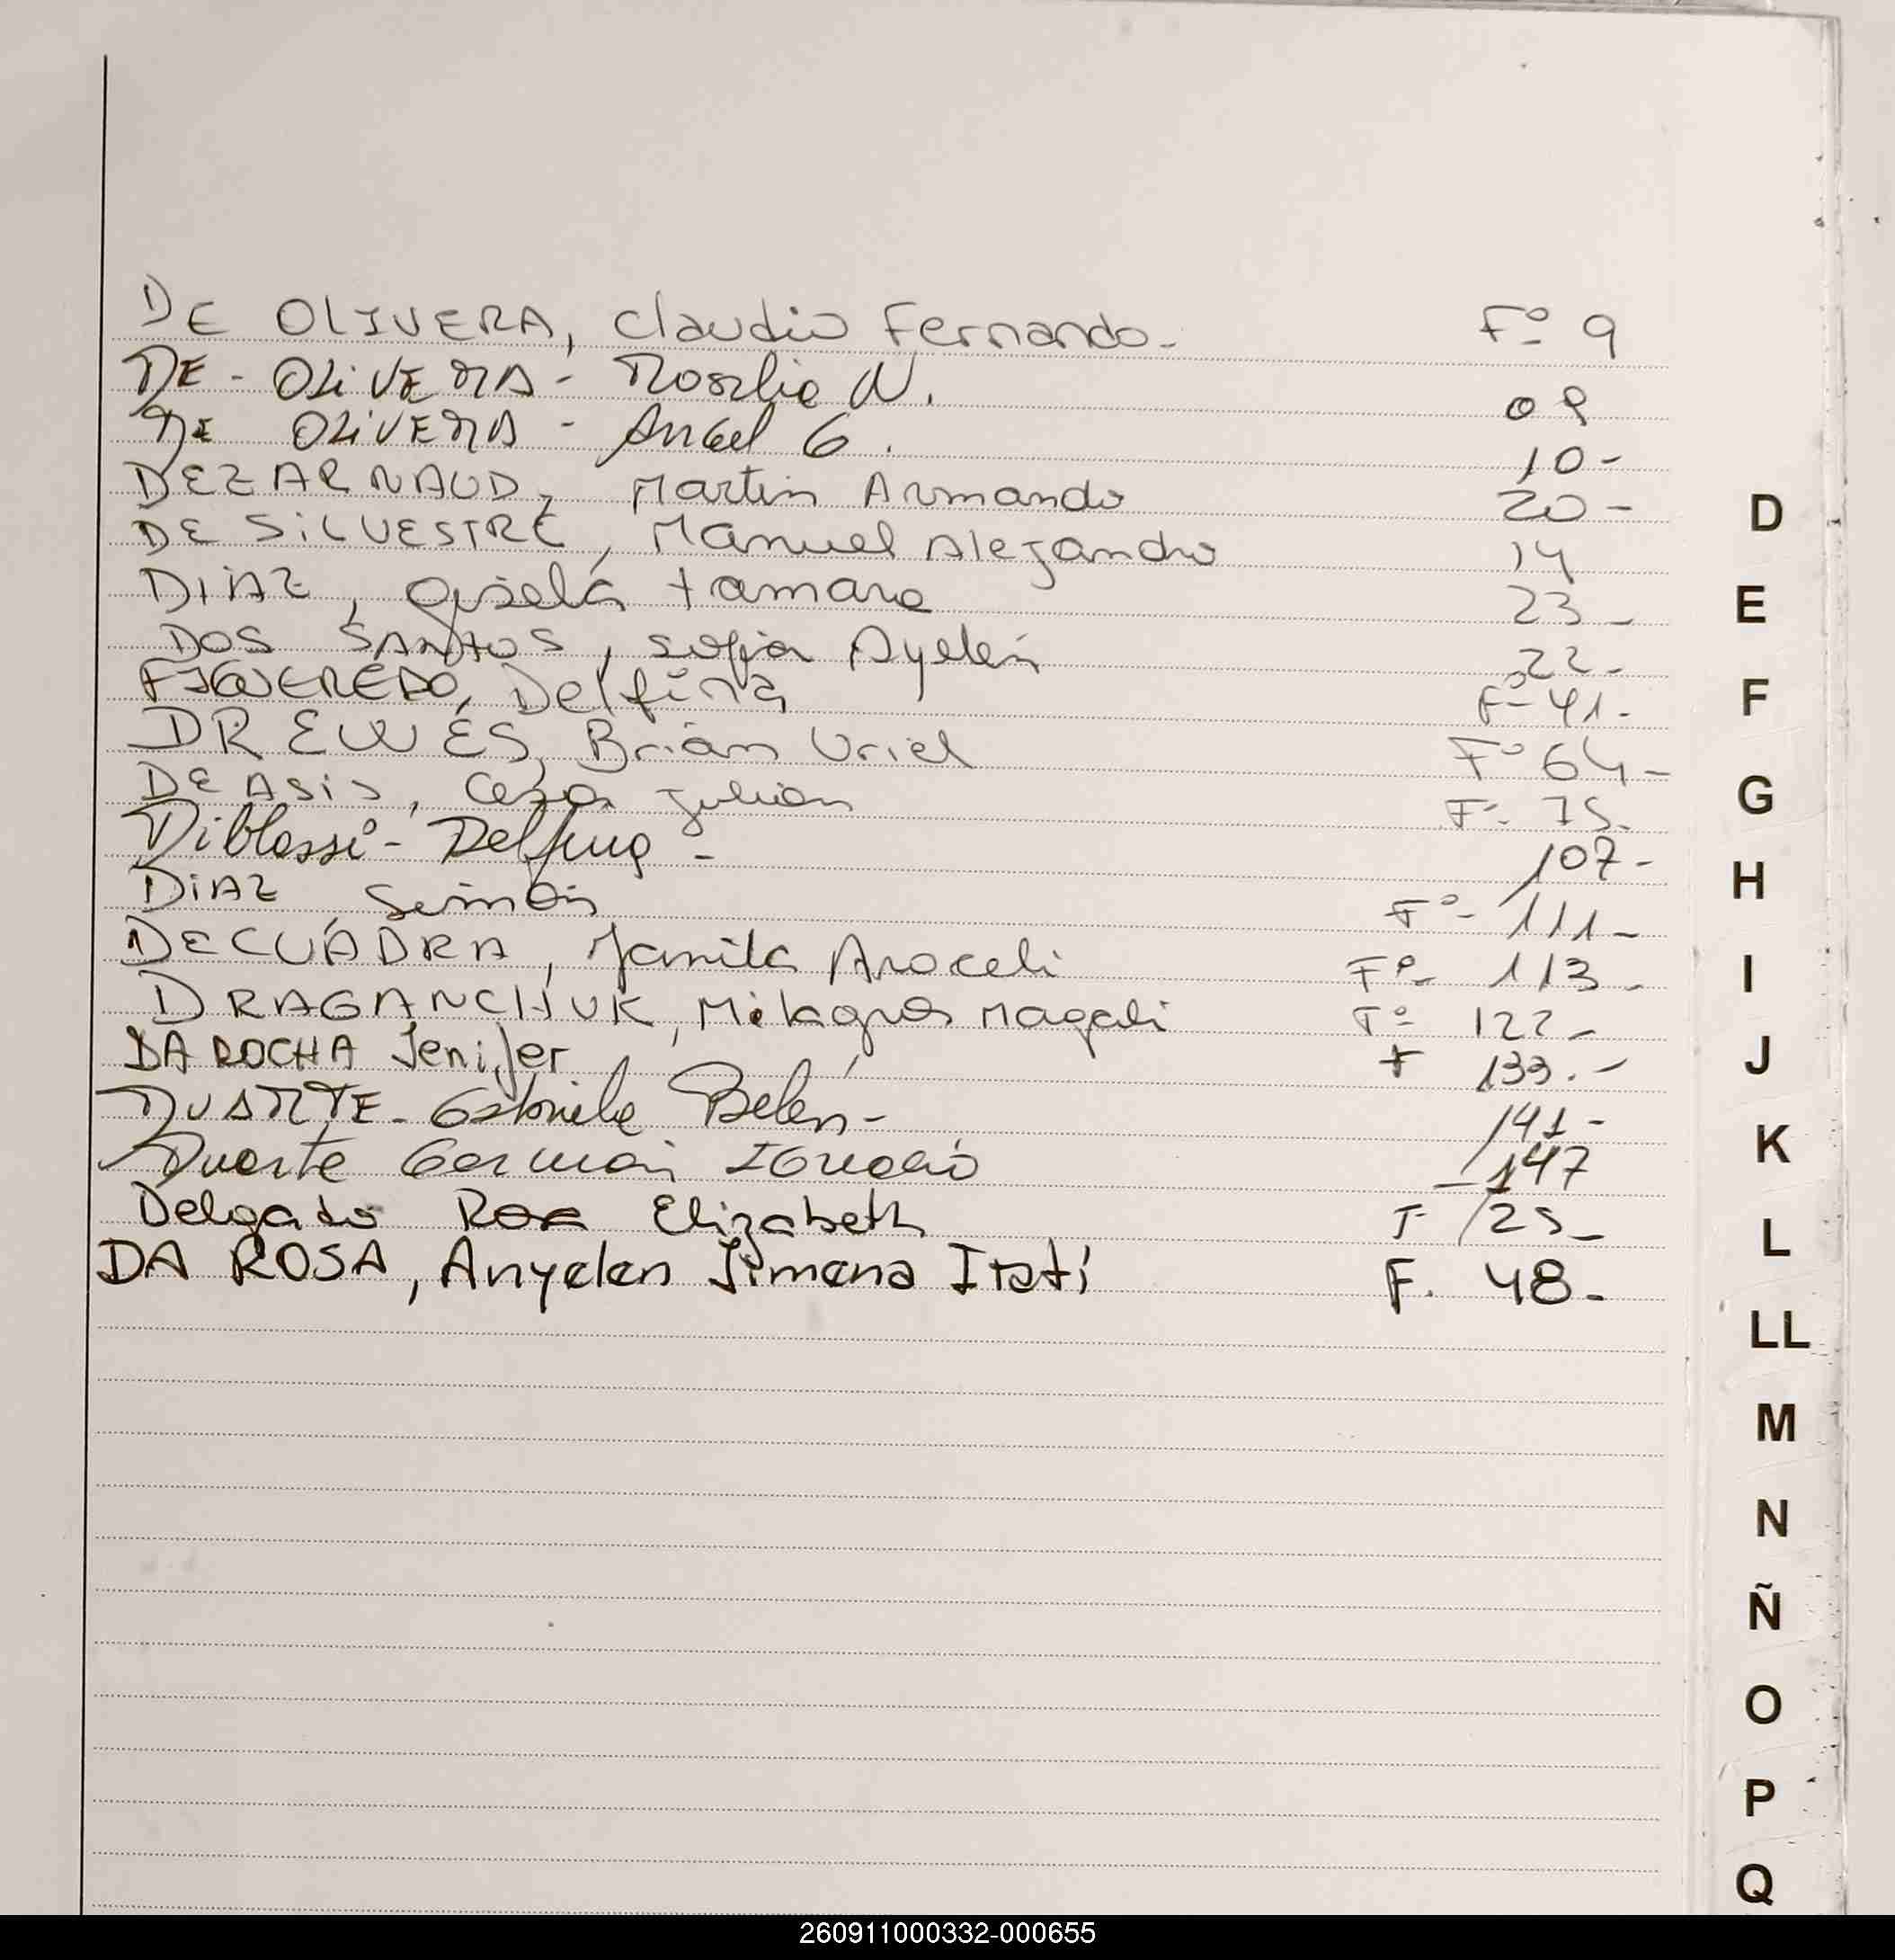 DE OLIVERA, Claudio Fernando- Fº 9
DE - OLiVERA - Rosalia N. 09
DE OLiVERA - Angel G. 10-
DEZARNAUD, Martin Armando 20-
DE SiLVESTRE, Manuel Alejandro 14
DIAZ, Gisela tamara 23-
DOS SANTOS, Sofia Ayelén 22-
FIGUEREDO, Delfina Fº 41.
DREWES, Brian Uriel Fº 64-
DE ASiS, Cesar Julian Fº 75-
Diblassi - Delfina - 107-
DiAZ, Simón Fº 111-
DECUADRA, Yamila Araceli Fº 113-
DRAGANCHUK, Milagros Magali Fº 122-
DA ROCHA Jenifer F 133.-
DUARTE - Gabriela Belen - 141-
Duarte German Ignacio 147
Delgado Elizabeth F 125-
DA ROSA, Anyelen Jimena Itatí F. 48-
D
E
F
G
H
I
J
K
L
LL
M
N
Ñ
O
P
Q
260911000332-000655